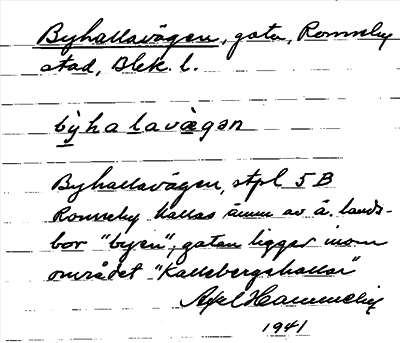 Byhallavägen, gata, Ronneby
stad, Blek. l.
byhalavägən
Byhallavägen, stpl 5 B
Ronneby kallas ännu av ä. lands-
bor "byen"; gatan ligger inom
området "Kallebergshallar"
Axel Hammelin
1941